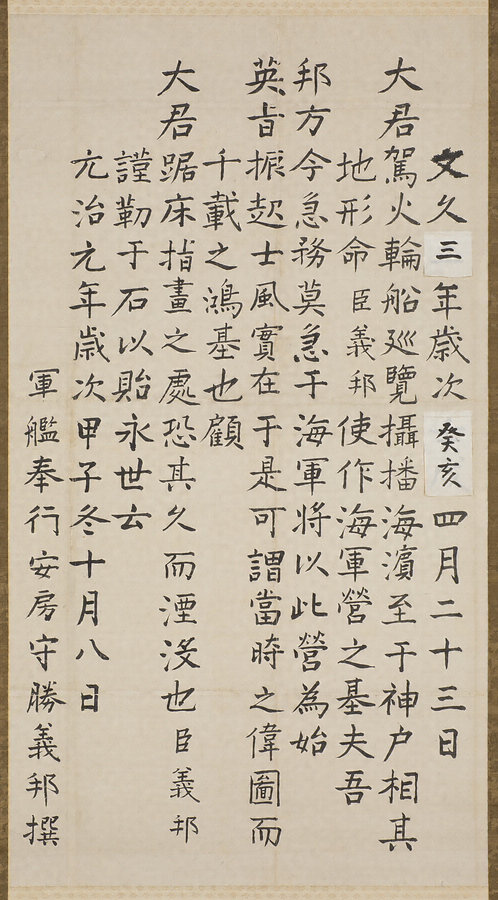 文久三年歳次癸亥四月二十三日
大君駕火輪船巡覽攝播海濱至于神户相其
地形命臣義邦使作海軍營之基夫吾
邦方今急務莫急于海軍將以此營為始
英旨振起士風實在于是可謂當時之偉圖而
千載之鴻基也顧
大君踞床指畫之處恐其久而湮沒也臣義邦
謹勒于石以貽永世云
元治元年歳次甲子冬十月八日
軍艦奉行安房守勝義邦撰